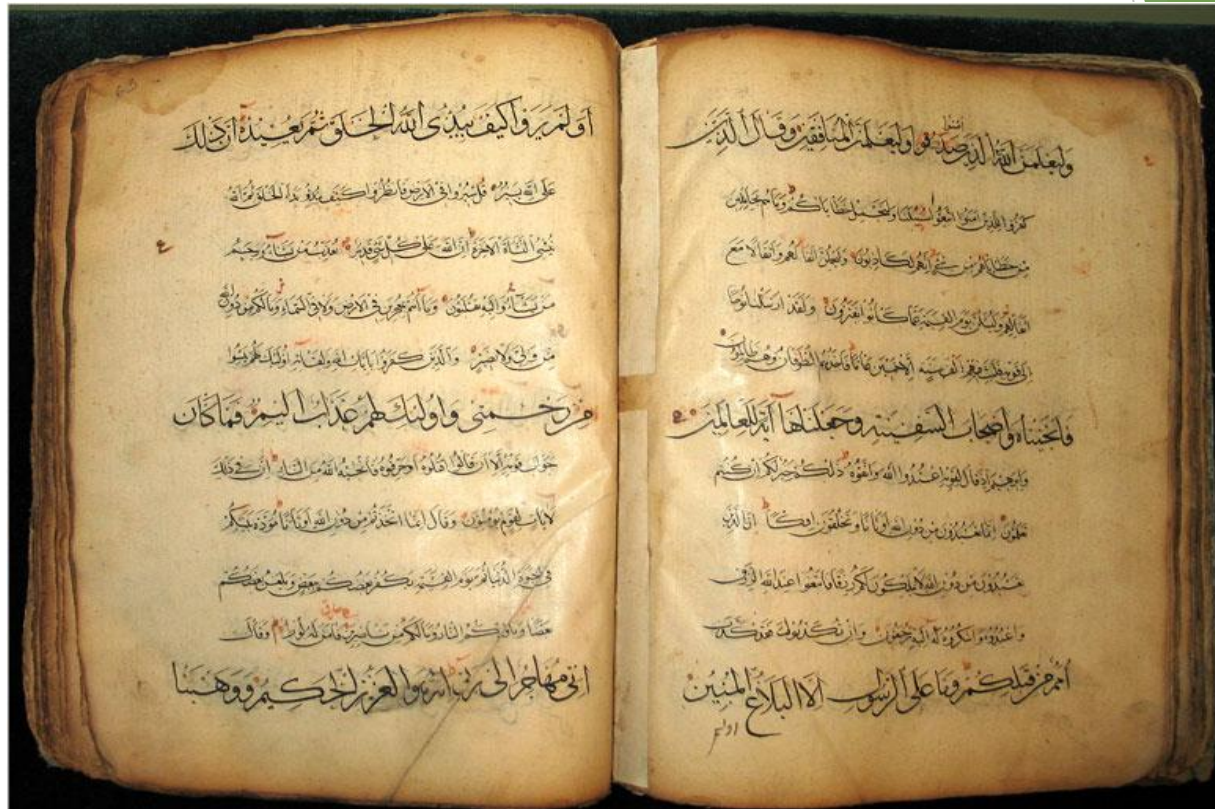 امنوا
وليعلمن الله الذين صدقوا وليعلمن المنافقين وقال الذين
كفروا للذين امنوا اتبعوا سبيلنا ولنحمل خطاياكم وما هم بحاملين
من خطاياهم من شئ انهم لكاذبون وليحملن اثقالهم واثقالا مع
اثقالهم وليسئلن يوم القيمة عما كانوا يفترون ولقد ارسلنا نوحا
الى قومه فلبث فيهم الف سنة الا خمسين عاما فاخذهم الطوفان وهم ظالمون
فانجيناه واصحاب السفينة وجعلناها آية للعالمين
وابرهيم اذ قال لقومه اعبدوا الله واتقوه ذلكم خير لكم ان كنتم
تعلمون انما تعبدون من دون الله اوثانا وتخلقون افكا ان الذين
تعبدون من دون الله لا يملكون لكم رزقا فابتغوا عند الله الرزق
واعبدوه واشكروا له اليه ترجعون وان تكذبوا فقد كذب
أمم من قبلكم وما على الرسول الا البلاغ المبين
اولم
أولم يروا كيف يبدئ الله الخلق ثم يعيده ان ذلك
على الله يسير قل سيروا في الارض فانظروا كيف بدأ الخلق ثم الله
ينشئ النشأة الاخرة ان الله على كل شئ قدير يعذب من يشاء ويرحم
من يشاء واليه تقلبون وما انتم بمعجزين في الارض ولا في السماء وما لكم من دون الله
من ولي ولا نصير والذين كفروا بايات الله ولقائه اولئك يئسوا
من رحمتي واولئك لهم عذاب اليم فما كان
جواب قومه الا ان قالوا اقتلوه او حرقوه فانجيه الله من النار ان في ذلك
لايات لقوم يؤمنون وقال انما اتخذتم من دون الله اوثانا مودة بينكم
في الحيوة الدنيا ثم يوم القيمة يكفر بعضكم ببعض ويلعن بعضكم
بعضا وماويكم النار وما لكم من ناصرين فامن له لوط وقال
اني مهاجر الى ربي انه هو العزيز الحكيم ووهبنا